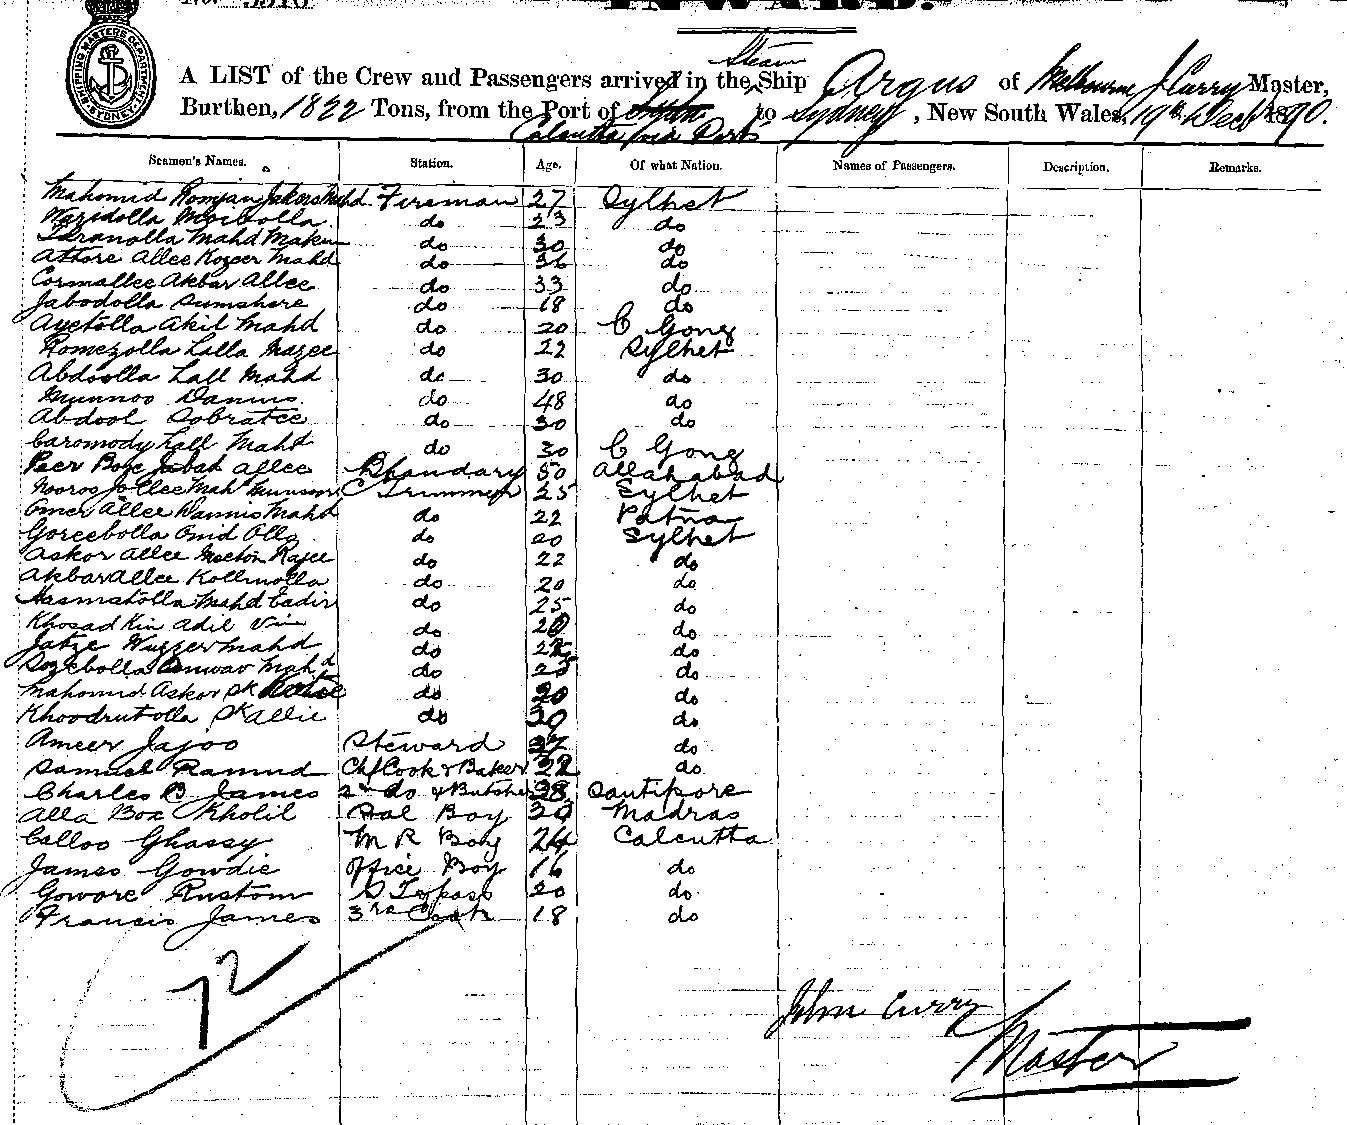 No.
INWARD.
SHIPPING MASTERS DEPARTMENT SYDNEY
Steam
A LIST of the Crew and Passengers arrived in the Ship Argus of Melbourne J. Curry Master,
Burthen, 1822 Tons, from the Port of to Sydney, New South Wales, 19th Decr 1890.
Calcutta via Ports
Seamen's Names. Station. Age. Of what Nation. Names of Passengers. Description. Remarks.
Mahomid Romjan Fireman 27 Sylhet
do 23 do
Mahd do 30 do
Attore Allee Kozeer Mahd do 36 do
Cormallee Akbar Allee do 33 do
Jabodolla Sumshere do 18 do
Ayetolla Akil Mahd do 20 C Gong
Romezolla Lalla Mazee do 22 Sylhet
Abdoolla Lall Mahd do 30 do
Munnoo do 48 do
Abdool Sobratee do 30 do
Caromody Lall Mahd do 30 C Gong
Peer Boxe Allee Bhandary 50 Allahabad
C Trimmer 25 Sylhet
Omer Allee Dannis Mahd do 22 Patna
Goreebolla Onid Olla do 20 Sylhet
Askor Allee do 22 do
Akbar Allee Kollimolla do 20 do
Hasmatolla Mahd Eadir do 25 do
Khosad Kin Adil do do
Wuzzer Mahd do do
Mahd do do
Mahomid Askor Sk do 20 do
Khoodrutolla Sk Allie do 30 do
Ameer Jajoo Steward 37 do
Samuel Ch Cook & Baker do
Charles B James 2nd do & Butcher 38 Santipore
Alla Box Kholil Sal Boy Madras
Calloo Ghassy M R Boy 24 Calcutta
James Gowdie Office Boy 16 do
Gowore Rustom S Topass 20 do
Francis James 3rd Cook 18 do
72
John Curry
Master